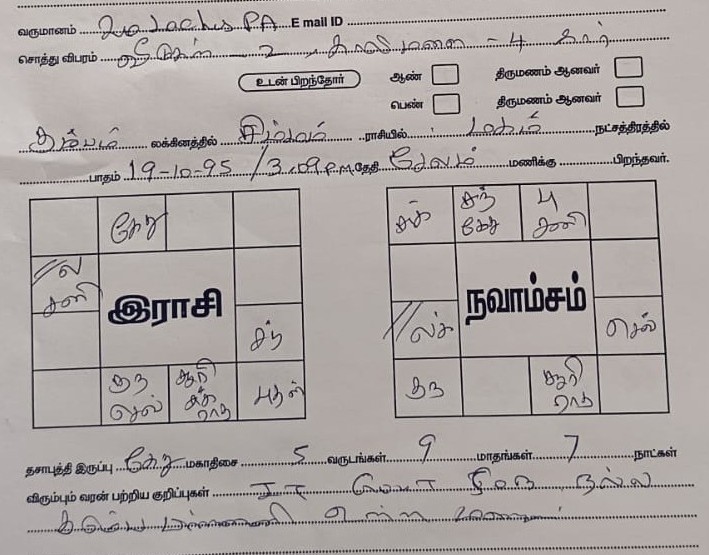 வருமானம் PA E mail ID
சொத்து விபரம் - 2 , - 4 கார்
உடன் பிறந்தோர் ஆண் திருமணம் ஆனவர்
பெண் திருமணம் ஆனவர்
கும்பம் லக்கினத்தில் சிம்மம் ராசியில் மகம் நட்சத்திரத்தில்
பாதம் 19-10-95 / 3.09 P.M. தேதி சேலம் மணிக்கு பிறந்தவர்.
கேது
ல
சனி
இராசி
சந்
குரு
செவ்
சூரி
சுக்
ராகு
புதன்
சுக்
சந்
கேது
பு
சனி
நவாம்சம்
லக்
செவ்
குரு
சூரி
ராகு
தசாபுத்தி இருப்பு கேது மகாதிசை 5 வருடங்கள் 9 மாதங்கள் 7 நாட்கள்
விரும்பும் வரன் பற்றிய குறிப்புகள் நல்ல